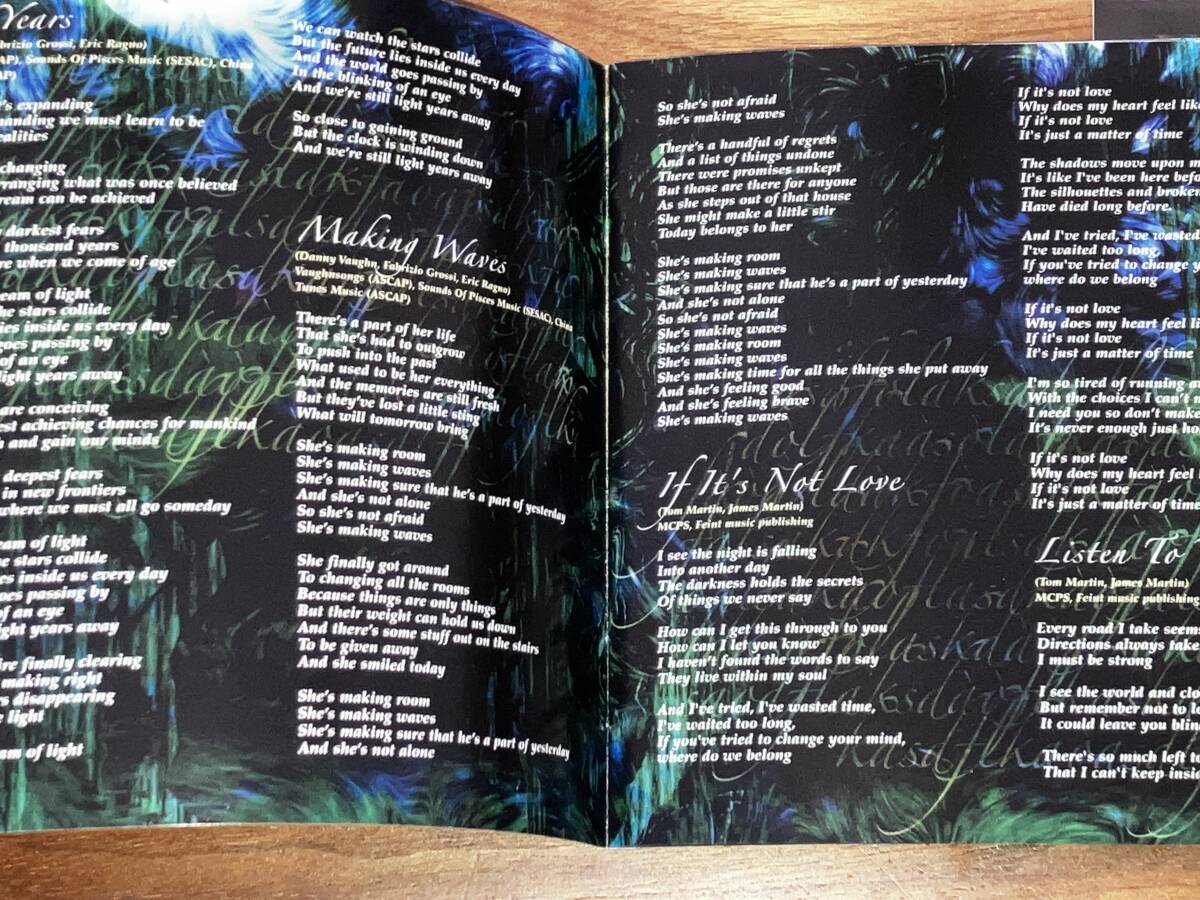 Years
Fabrizio Grossi, Eric Ragno)
Sounds Of Pisces Music (SESAC), China
AP)
's expanding
we must learn to be
changing
what was once believed
can be achieved
darkest fears
thousand years
when we come of age
of light
stars collide
inside us every day
goes passing by
of an eye
light years away
are conceiving
achieving chances for mankind
and gain our minds
deepest fears
in new frontiers
where we must all go someday
of light
stars collide
inside us every day
passing by
of an eye
years away
finally clearing
making right
disappearing
light
of light
We can watch the stars collide
But the future lies inside us every day
And the world goes passing by
In the blinking of an eye
And we're still light years away
So close to gaining ground
But the clock is winding down
And we're still light years away
Making Waves
(Danny Vaughn, Fabrizio Grossi, Eric Ragno)
Vaughnsongs (ASCAP), Sounds Of Pisces Music (SESAC), China
Tunes Music (ASCAP)
There's a part of her life
That she's had to outgrow
To push into the past
What used to be her everything
And the memories are still fresh
But they've lost a little sting
What will tomorrow bring
She's making room
She's making waves
She's making sure that he's a part of yesterday
And she's not alone
So she's not afraid
She's making waves
She finally got around
To changing all the rooms
Because things are only things
But their weight can hold us down
And there's some stuff out on the stairs
To be given away
And she smiled today
She's making room
She's making waves
She's making sure that he's a part of yesterday
And she's not alone
So she's not afraid
She's making waves
There's a handful of regrets
And a list of things undone
There were promises unkept
But those are there for anyone
As she steps out of that house
She might make a little stir
Today belongs to her
She's making room
She's making waves
She's making sure that he's a part of yesterday
And she's not alone
So she's not afraid
She's making waves
She's making room
She's making waves
She's making time for all the things she put away
And she's feeling good
And she's feeling brave
She's making waves
If It's Not Love
(Tom Martin, James Martin)
MCPS, Feint music publishing
I see the night is falling
Into another day
The darkness holds the secrets
Of things we never say
How can I get this through to you
How can I let you know
I haven't found the words to say
They live within my soul
And I've tried, I've wasted time,
I've waited too long,
If you've tried to change your mind,
where do we belong
If it's not love
Why does my heart feel
If it's not love
It's just a matter of time
The shadows move upon
It's like I've been here
The silhouettes and
Have died long before.
And I've tried, I've wasted
I've waited too long,
If you've tried to change
where do we belong
If it's not love
Why does my heart feel
If it's not love
It's just a matter of time
I'm so tired of running
With the choices I can't
I need you so don't
It's never enough just
If it's not love
Why does my heart feel
If it's not love
It's just a matter of
Listen To
(Tom Martin, James Martin)
MCPS, Feint music publishing
Every road I take
Directions always take
I must be strong
I see the world and
But remember not to
It could leave you
There's so much left to
That I can't keep